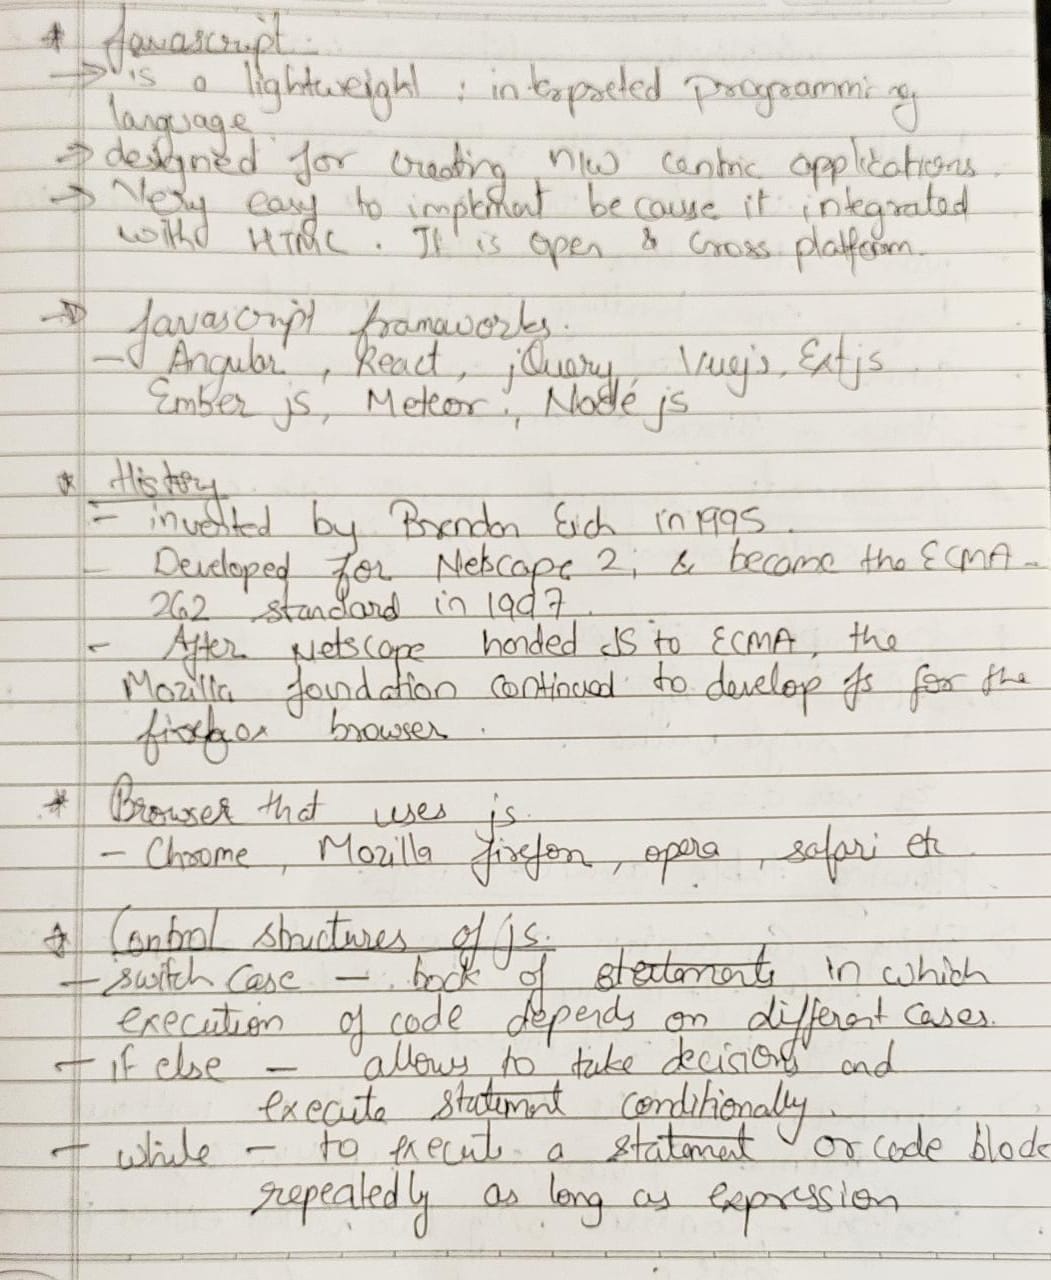 * Javascript :
→ is a lightweight ; interpreted programming
language
→ designed for creating n/w centric applications.
→ Very easy to implement because it integrated
with HTML. It is open & cross platform.
→ Javascript framaworks.
- Angular, React, jQuery, Vuejs, Extjs
Ember js, Meteor, Node js
* History
- invented by Brendon Eich in 1995.
- Developed for Netscape 2, & become the ECMA-
262 standard in 1997.
- After Netscape handed JS to ECMA, the
Mozilla foundation continued to develop Js for the
firefox browser.
* Browser that uses js.
- Chrome, Mozilla firefon, opera, safari etc
* Control structures of js.
- switch case - bock of statements in which
execution of code depends on different cases.
- if else - allows to take decisions and
execute statement conditionally.
- while - to execute a statement or code block
repeatedly as long as expression